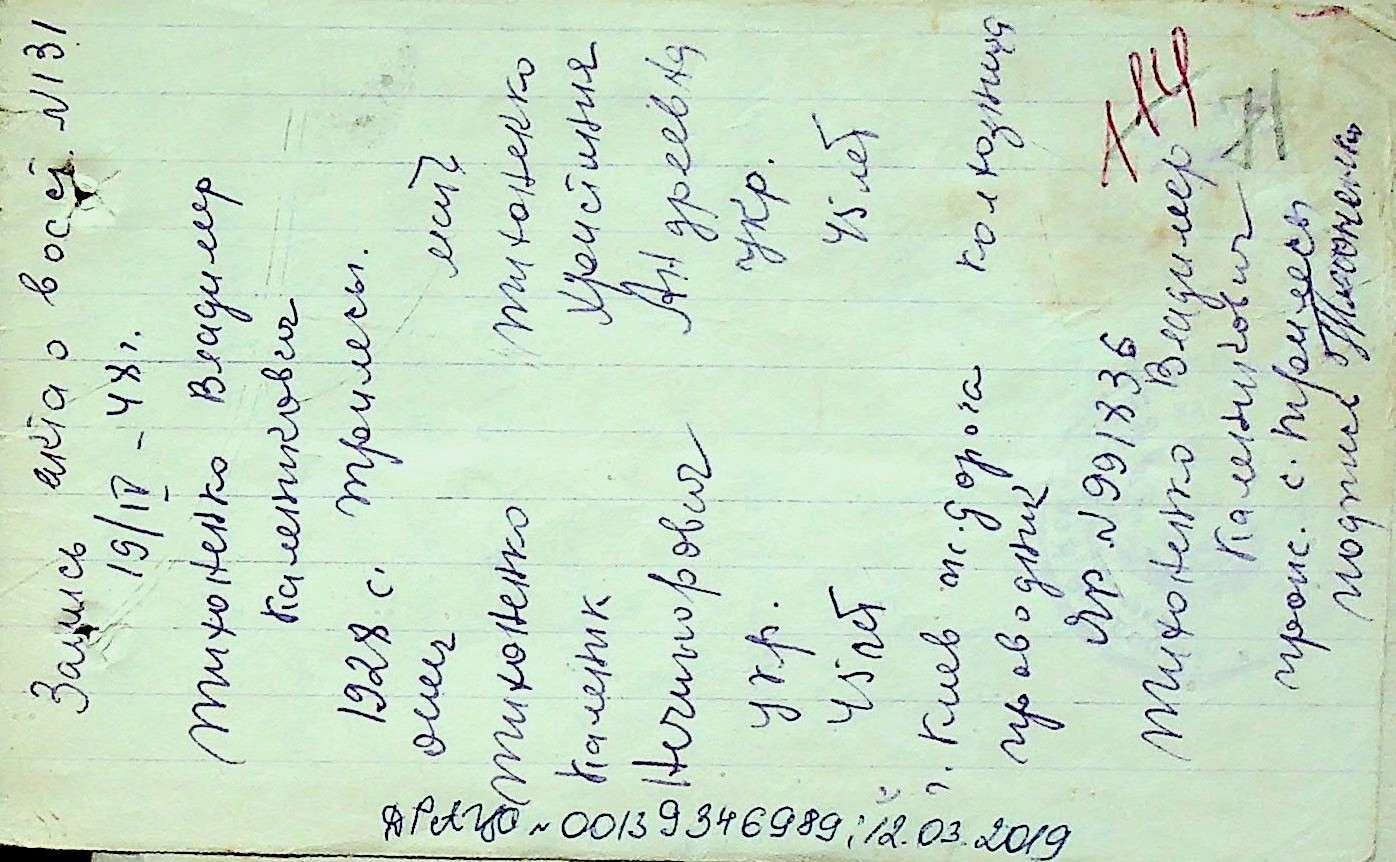 Запись акта о восст. N 131
19/IV – 48 г.
Тихоненко Владимир
Каленикович
1928 с. Трилесы.
отец мать
Тихоненко Тихоненко
Каленик Христиня
Ничипорович Андреевна
укр. укр.
45 лет 45 лет
г. Киев ж. дорога колхозница
проводник
N 991836
Тихоненко Владимир
Каленикович
прож. с. Трилесы
подпись Тихоненко
114
71
ДРАЦС N 00139346989; 12.03.2019